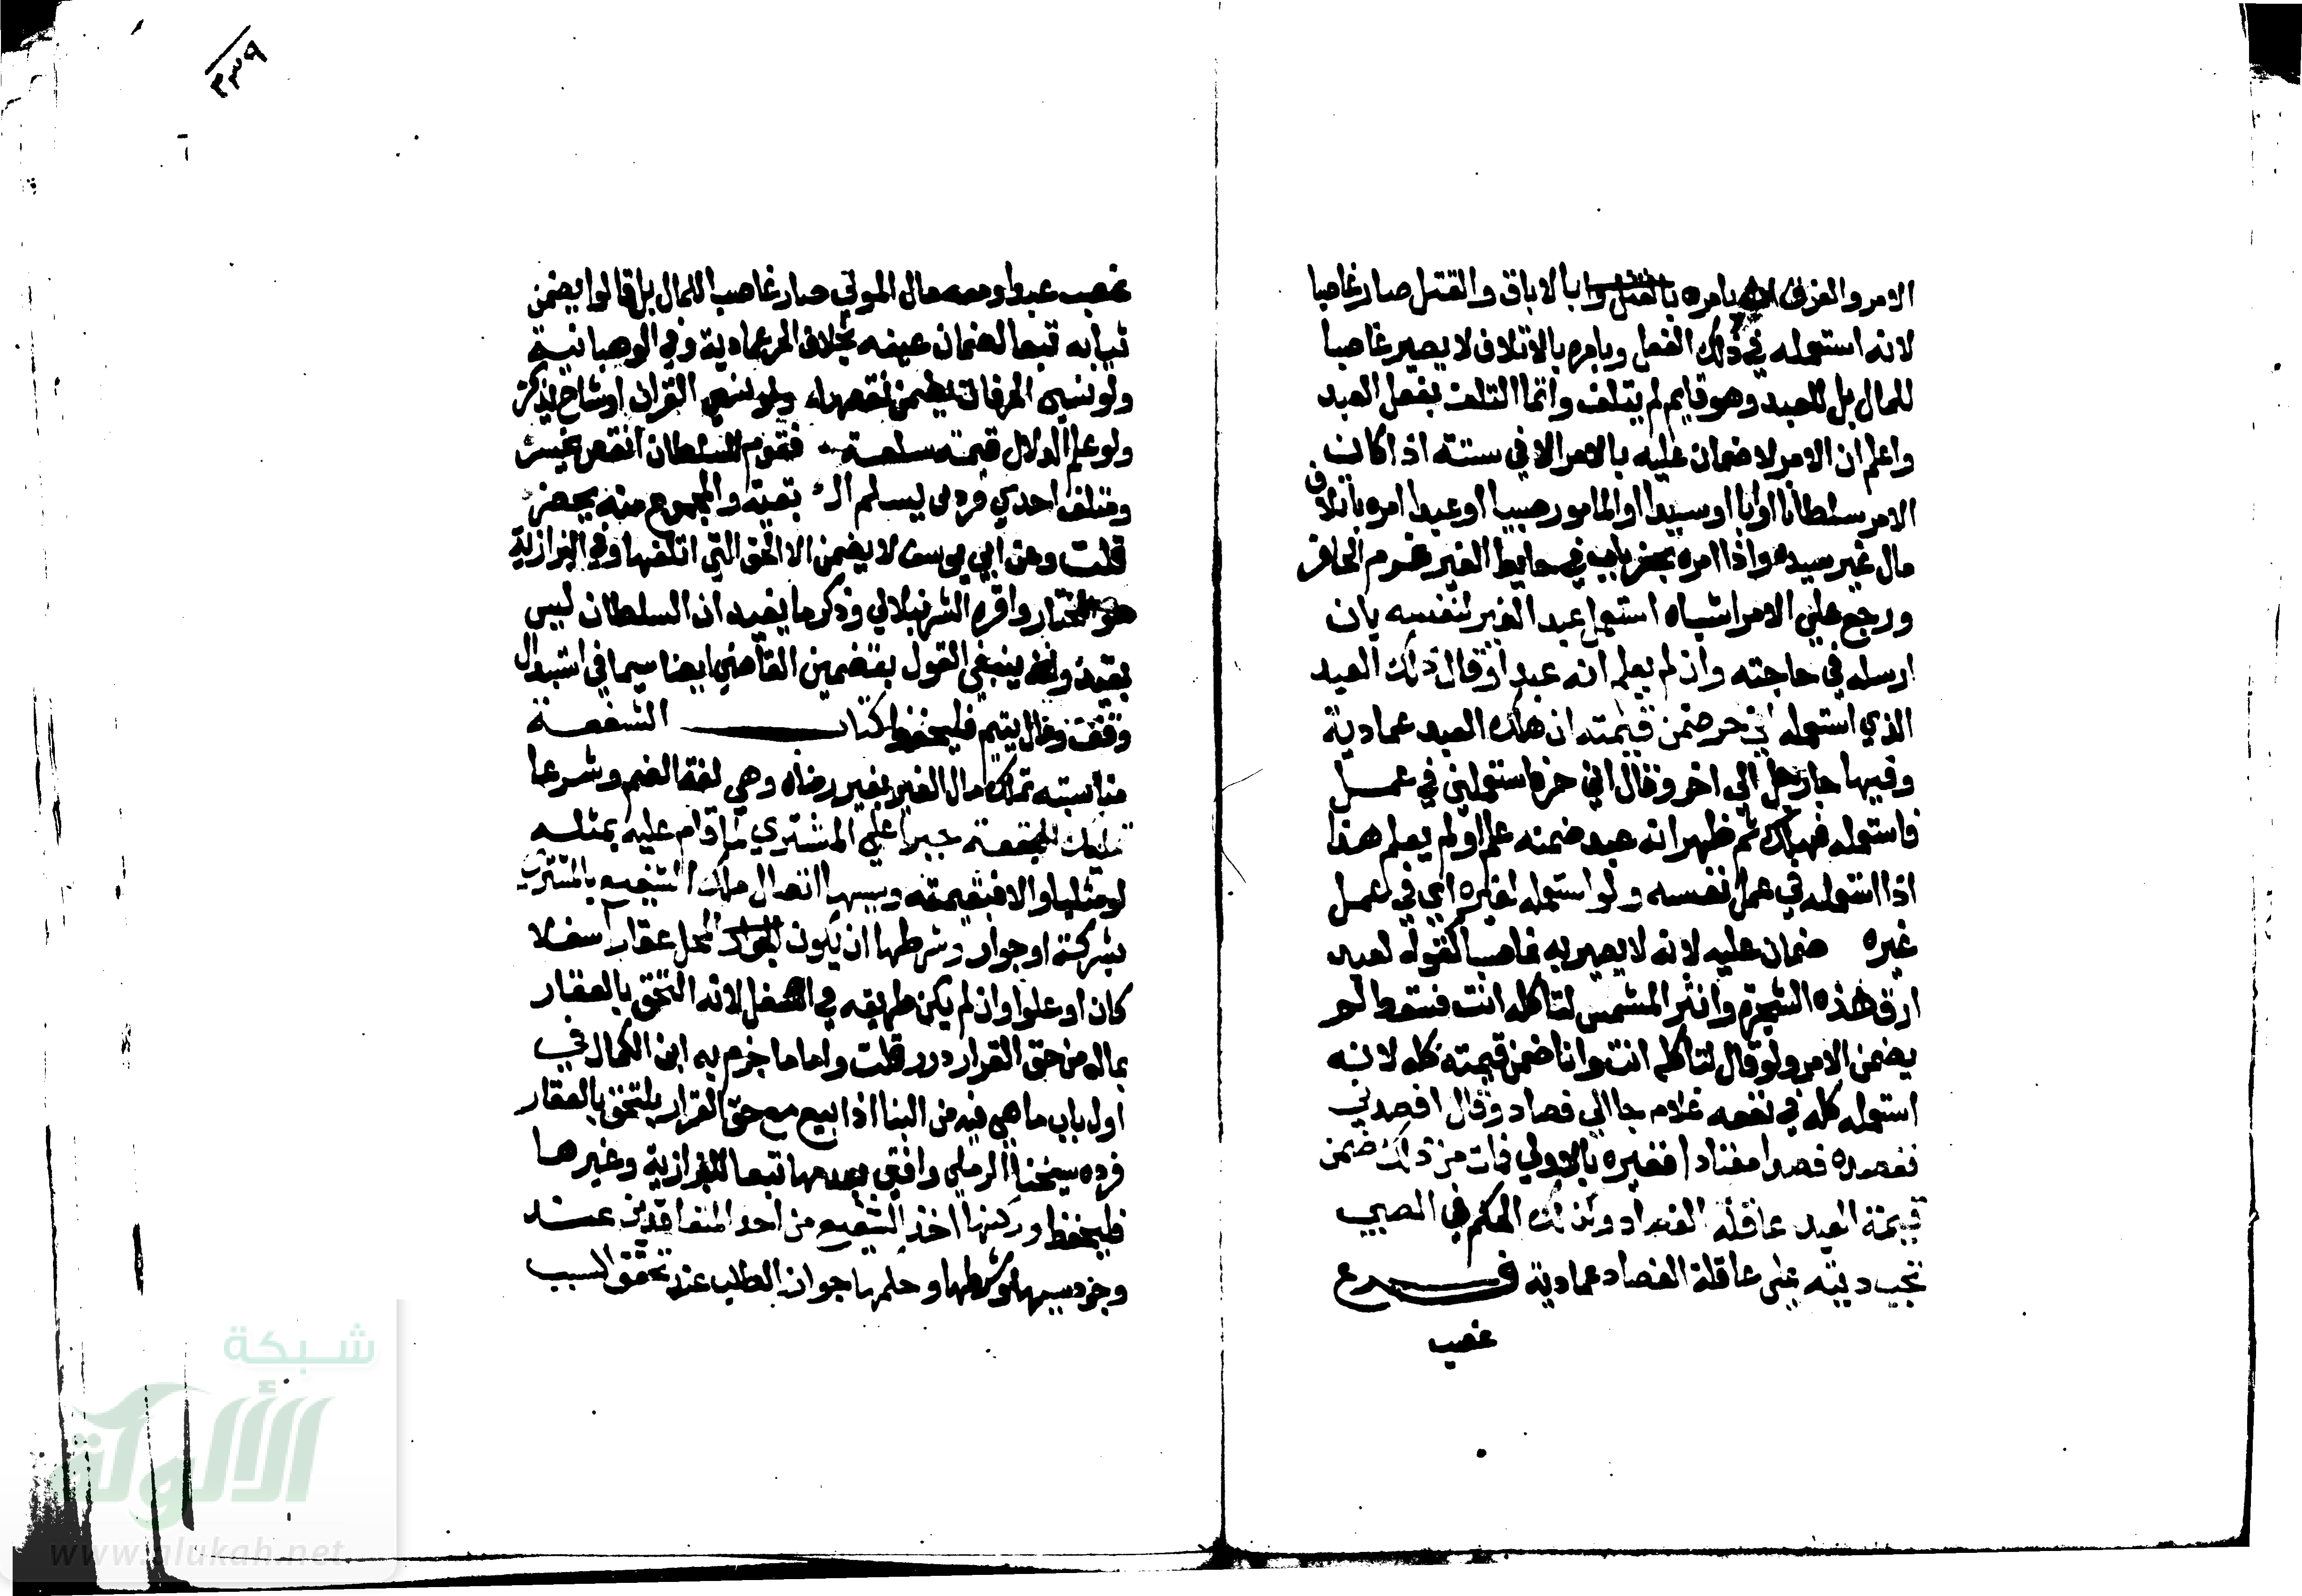 الامر والفرق ان بامره بالاباق والقتل صار غاصبا
لانه استعمله في ذلك الفعل وبامره بالاتلاف لا يصير غاصبا
للمال بل للعبد وهو قايم لم يتلف وانما التلف بفعل العبد
واعلم ان الامر لا ضمان عليه بالامر الا في ستة اذا كان
الامر سلطانا او ابا او سيدا او المامور صبيا او عبدا امره باتلاف
مال غير سيده واذا امره بحفر باب في حايط الغير غرم الحافر
ورجع علي الامر اشباه استعمل عبد الغير لنفسه بان
ارسله في حاجته وان لم يعلم انه عبد او قال ذلك العبد
الذي استعمله اني حر ضمن قيمته ان هلك العبد عمادية
وفيها جا رجل الي اخر وقال اني حر فاستعملني في عمل
فاستعمله فهلك ثم ظهر انه عبد ضمنه علم او لم يعلم هذا
اذا استعمله في عمل نفسه ولو استعمله لغيره اي في عمل
غيره ضمان عليه لانه لا يصير به غاصبا كقوله لعبد
ارق هذه الشجرة وانثر المشمش لتاكله انت فسقط لم
يضمن الامر ولو قال لتاكله انت وانا ضمن قيمته كله لانه
استعمله كله في نفعه غلام جا الي فصاد وقال افصدني
ففصده فصدا معتادا فغيره بالاولي فمات من ذلك ضمن
قيمة العبد عاقلة الفصاد وكذلك الحكم في الصبي
تجب ديته علي عاقلة الفصاد عمادية فرع
غصب
٣٣٩
غصب عبدا ومعه مال المولي صار غاصبا للمال بل قالوا يضمن
ثيابه تبعا لضمان عينه بخلاف الحر عمادية وفي الوهبانية
ولو نسي الحرفات يضمن نقصها ولو نسي القران او شاخ يذكر
ولو علم الدلال قيمة سلعة فقوم للسلطان انقص يخسر
ومتلف احدي فردي يسلم البقية والمجموع منه يحضر
قلت وعن ابي يوسف لا يضمن الا الخف التي اتلفها وفي البزازية
هو المختار واقره الشرنبلالي وذكر ما يفيد ان السلطان ليس
بقيد ينبغي القول بتضمين القاضي ايضا سيما في استبدال
وقف ومال يتيم فليحفظ كتاب الشفعة
مناسبته تملك مال الغير بغير رضاه وهي لغة الضم وشرعا
تمليك البقعة جبرا علي المشتري بما قام عليه بمثله
لو مثليا والا فبقيمته وسببها اتصال ملك الشفيع بالمشتري
بشركة او جوار وشرطها ان يكون المحل عقارا سفلا
كان او علوا وان لم يكن طريقه في السفل لانه التحق بالعقار
بما له من حق القرار درر قلت واما ما جزم به ابن الكمال في
اول باب ما هي فيه من البنا اذا بيع مع حق القرار يلتحق بالعقار
فرده شيخنا الرملي وافتي بعدمها تبعا للبزازية وغيرها
فليحفظ وركنها اخذ الشفيع من احد المتعاقدين عند
وجود سببها وشرطها وحكمها جواز الطلب عند تحقق السبب
شبكة
الألوكة
www.alukah.net